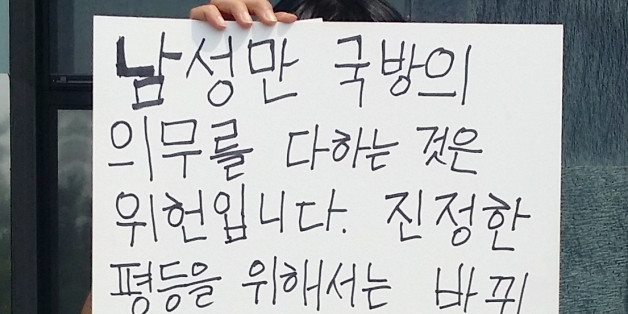 남성만 국방의
의무를 다하는 것은
위헌입니다. 진정한
평등을 위해서는 바뀌